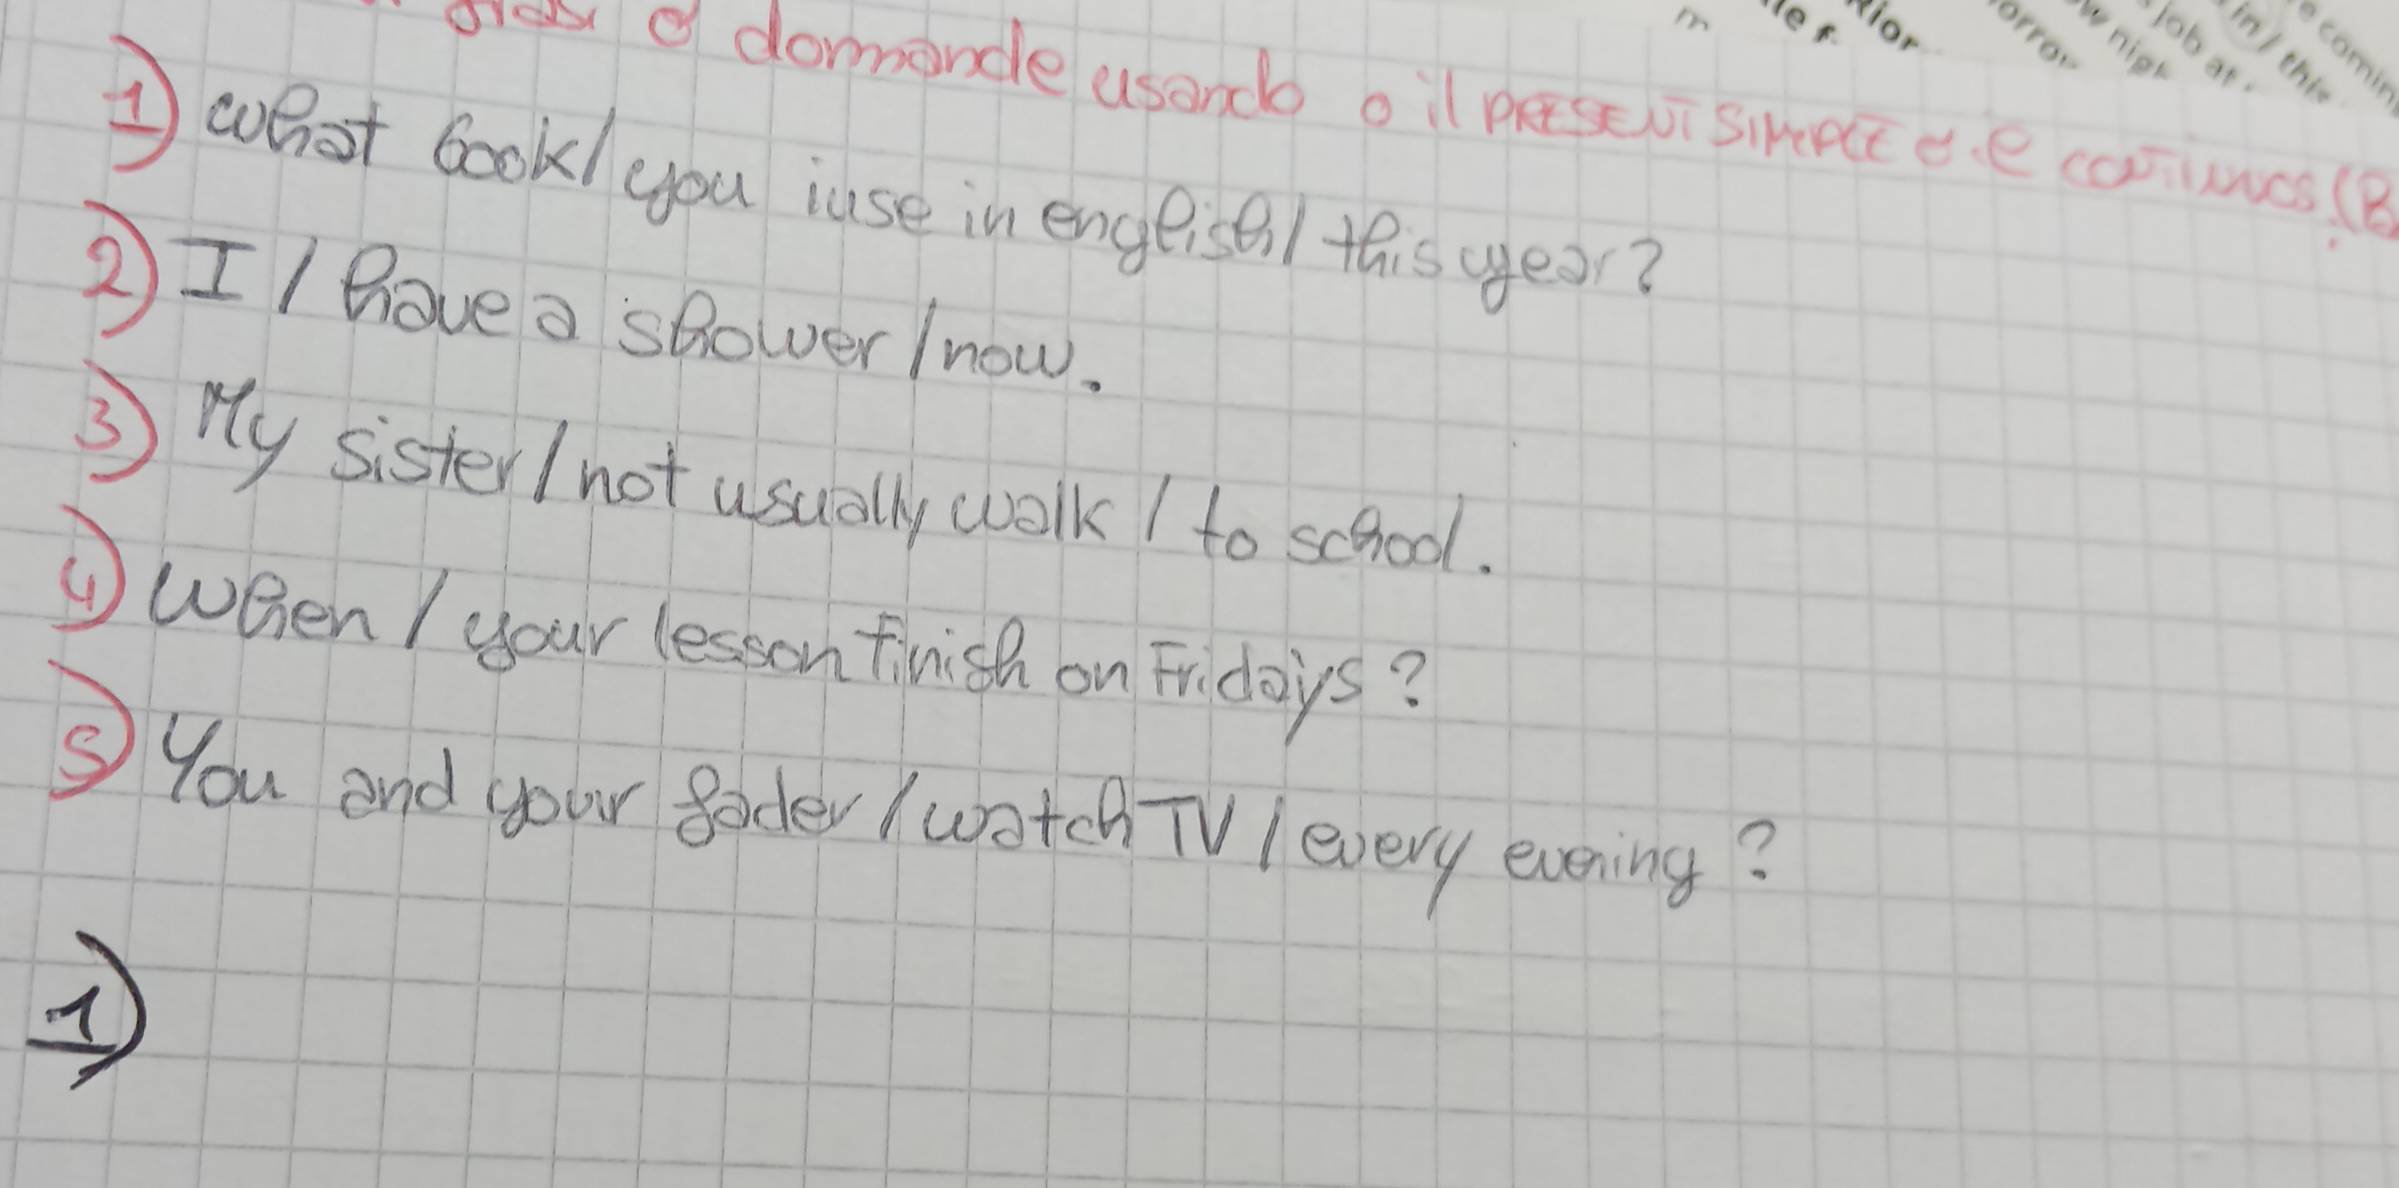 o domande usando o il PRESENT SIMPLE o il continuos (B
1) What book/ you iuse in english/ this year?
2) I / have a shower / now.
3) My sister / not usually walk / to school.
4) When / your lesson finish on Fridays?
5) You and your fader / watch TV / every evening?
1)
job at.
in/ this
comin